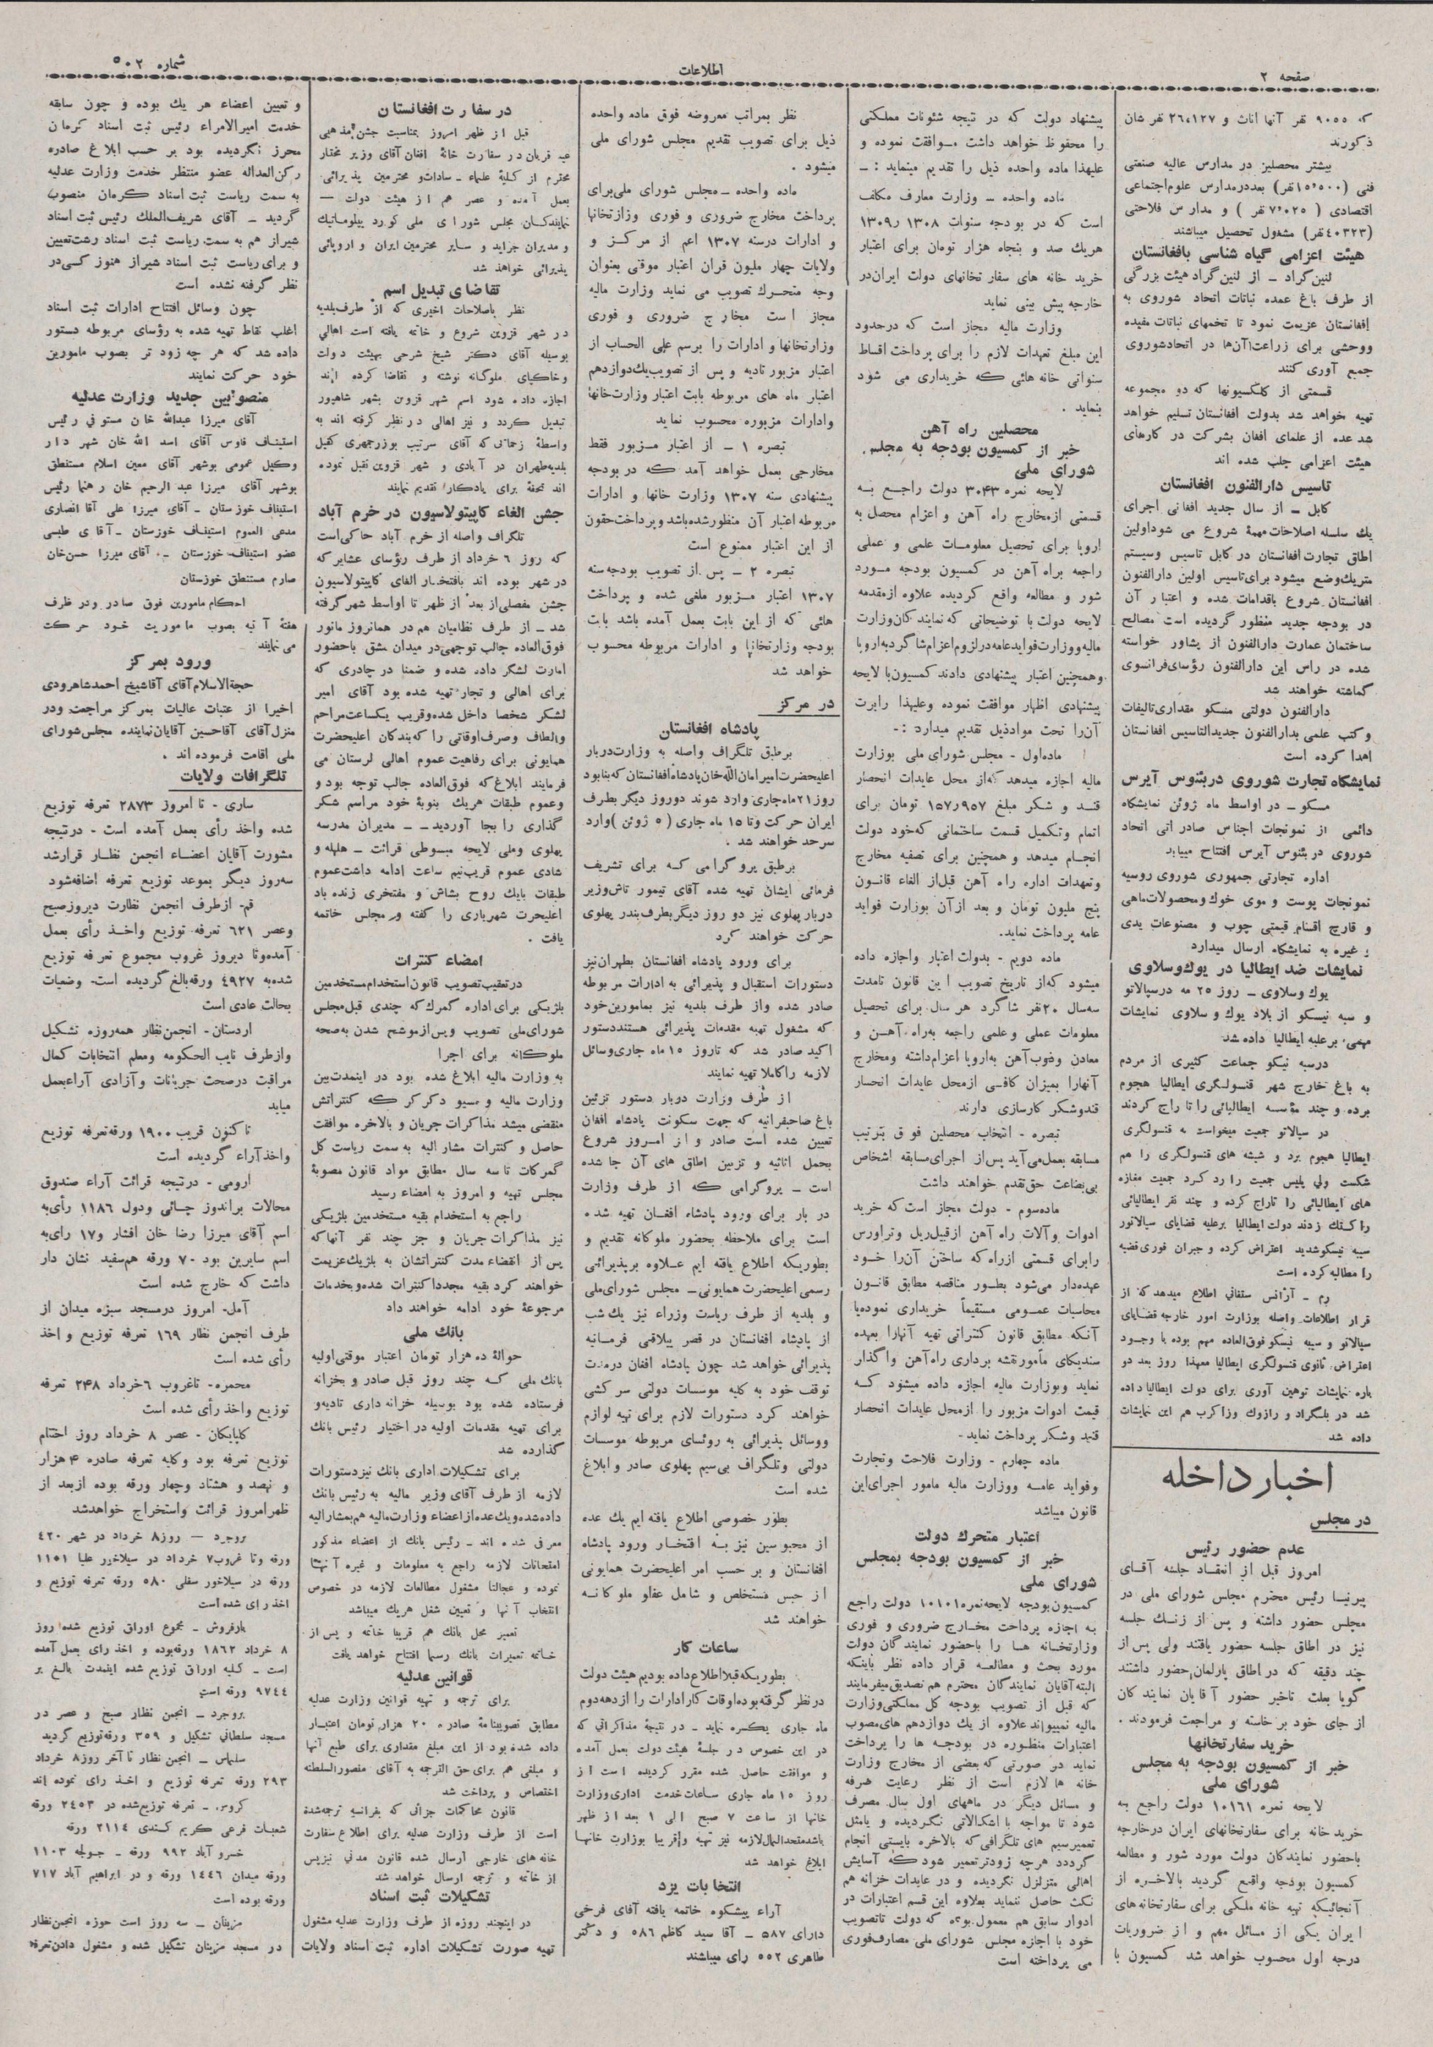 صفحه ۲
اطلاعات
شماره ۵۰۲
که ۹۰۵۵ نفر آنها اناث و ۲۶،۱۲۷ نفر شان
ذکورند
بیشتر محصلین در مدارس عالیه صنعتی
فنی (۱۵٬۵۰۰ نفر) بعد در مدارس علوم اجتماعی
اقتصادی (۷٬۰۲۵ نفر) و مدارس فلاحتی
(۴۰۳۲۳ نفر) مشغول تحصیل میباشند
هیئت اعزامی گیاه شناسی بافغانستان
لنین گراد ـ از لنین گراد هیئت بزرگی
از طرف باغ عمده نباتات اتحاد شوروی به
افغانستان عزیمت نمود تا تخمهای نباتات مفیده
ووحشی برای زراعت آن‌ها در اتحاد شوروی
جمع آوری کنند
قسمتی از کلکسیونها که دو مجموعه
تهیه خواهد شد بدولت افغانستان تسلیم خواهد
شد عده از علمای افغان بشرکت در کارهای
هیئت اعزامی جلب شده اند
تاسیس دارالفنون افغانستان
کابل ـ از سال جدید افغانی اجرای
یك سلسله اصلاحات مهمهٔ شروع می شود اولین
اطاق تجارت افغانستان در کابل تاسیس وسیستم
متریك وضع میشود برای تاسیس اولین دارالفنون
افغانستان شروع باقدامات شده و اعتبار آن
در بودجه جدید منظور گردیده است مصالح
ساختمان عمارت دارالفنون از پشاور خواسته
شده در راس این دارالفنون رؤسای فرانسوی
گماشته خواهند شد
دارالفنون دولتی مسکو مقداری تالیفات
وکتب علمی بدارالفنون جدیدالتاسیس افغانستان
اهدا کرده است
نمایشگاه تجارت شوروی در بئنوس آیرس
مسکو ـ در اواسط ماه ژوئن نمایشگاه
دائمی از نمونجات اجناس صادراتی اتحاد
شوروی در بئنوس آیرس افتتاح مییابد
اداره تجارتی جمهوری شوروی روسیه
نمونجات پوست و موی خوك ومحصولات ماهی
و قارچ اقسام قیمتی چوب و مصنوعات یدی
و غیره به نمایشگاه ارسال میدارد
نمایشات ضد ایطالیا در یوك وسلاوی
یوك وسلاوی ـ روز ۲۵ مه در سپالاتو
و سبه نیسکو از بلاد یوك و سلاوی نمایشات
مهمی برعلیه ایطالیا داده شد
در سبه نیکو جماعت کثیری از مردم
به باغ خارج شهر قنسولگری ایطالیا هجوم
برده و چند مؤسسه ایطالیائی را تاراج کردند
در سپالاتو جمعیت میخواست به قنسولگری
ایطالیا هجوم برد و شیشه های قنسولگری را هم
شکست ولی پلیس جمعیت را رد کرد جمعیت مغازه
های ایطالیائی را تاراج کرده و چند نفر ایطالیائی
را کتك زدند دولت ایطالیا برعلیه قضایای سپالاتو
سبه نیسکو شدید اعتراض کرده و جبران فوری قضیه
را مطالبه کرده است
رم ـ آژانس ستفانی اطلاع میدهد که از
قرار اطلاعات واصله بوزارت امور خارجه قضایای
سپالاتو و سبه نیسکو فوق‌العاده مهم بوده با وجود
اعتراض ثانوی قنسولگری ایطالیا معهذا روز بعد دو
باره نمایشات توهین آوری برای دولت ایطالیا داده
شد در بلگراد و رازوك وزاکرب هم این نمایشات
داده شد
اخبار داخله
در مجلس
عدم حضور رئیس
امروز قبل از انعقاد جلسه آقای
پیرنیا رئیس محترم مجلس شورای ملی در
مجلس حضور داشته و پس از زنگ جلسه
نیز در اطاق جلسه حضور یافتند ولی پس از
چند دقیقه که در اطاق پارلمان حضور داشتند
گویا بعلت تاخیر حضور آقایان نمایندگان
از جای خود بر خاسته و مراجعت فرمودند .
خرید سفارتخانها
خبر از کمسیون بودجه به مجلس
شورای ملی
لایحه نمره ۱۰۱۶۱ دولت راجع به
خرید خانه برای سفارتخانهای ایران درخارجه
باحضور نمایندگان دولت مورد شور و مطالعه
کمسیون بودجه واقع گردید بالاخره از
آنجائیکه تهیه خانه ملکی برای سفارتخانه‌های
ایران یکی از مسائل مهم و از ضروریات
درجه اول محسوب خواهد شد کمسیون با
پیشنهاد دولت که در نتیجه شئونات مملکتی
را محفوظ خواهد داشت موافقت نموده و
علیهذا ماده واحده ذیل را تقدیم مینماید : ـ
ماده واحده ـ وزارت معارف مکلف
است که در بودجه سنوات ۱۳۰۸ و ۱۳۰۹
هریك صد و پنجاه هزار تومان برای اعتبار
خرید خانه های سفارتخانهای دولت ایران در
خارجه پیش بینی نماید
وزارت مالیه مجاز است که درحدود
این مبلغ تعهدات لازم را برای پرداخت اقساط
سنواتی خانه هائی که خریداری می شود
بنماید .
محصلین راه آهن
خبر از کمسیون بودجه به مجلس
شورای ملی
لایحه نمره ۳۰۴۳ دولت راجع به
قسمتی از مخارج راه آهن و اعزام محصل به
اروپا برای تحصیل معلومات علمی و عملی
راجعه براه آهن در کمسیون بودجه مورد
شور و مطالعه واقع گردیده علاوه از مقدمه
لایحه دولت با توضیحاتی که نمایندگان وزارت
مالیه ووزارت فواید عامه در لزوم اعزام شاگرد به اروپا
وهمچنین اعتبار پیشنهادی دادند کمسیون با لایحه
پیشنهادی اظهار موافقت نموده وعلیهذا راپرت
آن را تحت مواد ذیل تقدیم میدارد : -
ماده اول - مجلس شورای ملی بوزارت
مالیه اجازه میدهد که از محل عایدات انحصار
قند و شکر مبلغ ۱۵۷٫۹۵۷ تومان برای
اتمام وتکمیل قسمت ساختمانی که خود دولت
انجام میدهد و همچنین برای تصفیه مخارج
وتعهدات اداره راه آهن قبل از الغاء قانون
پنج ملیون تومان و بعد از آن بوزارت فواید
عامه پرداخت نماید.
ماده دویم - بدولت اعتبار واجازه داده
میشود که از تاریخ تصویب این قانون تامدت
سه سال ۲۰ نفر شاگرد هر سال برای تحصیل
معلومات عملی و علمی راجعه به راه آهن و
معادن وذوب آهن به اروپا اعزام داشته ومخارج
آنهارا بمیزان کافی از محل عایدات انحصار
قندوشکر کارسازی دارند
تبصره - انتخاب محصلین فوق بترتیب
مسابقه بعمل می‌آید پس از اجرای مسابقه اشخاص
بی‌بضاعت حق تقدم خواهند داشت
ماده سوم - دولت مجاز است که خرید
ادوات وآلات راه آهن از قبیل ریل وتراورس
را برای قسمتی از راه که ساختن آن را خود
عهده‌دار می‌شود بطور مناقصه مطابق قانون
محاسبات عمومی مستقیماً خریداری نموده یا
آنکه مطابق قانون کنتراتی تهیه آنهارا بعهده
سندیکای مأمور نقشه برداری راه آهن واگذار
نماید وبوزارت مالیه اجازه داده میشود که
قیمت ادوات مزبور را از محل عایدات انحصار
قند وشکر پرداخت نماید.
ماده چهارم - وزارت فلاحت وتجارت
وفواید عامه ووزارت مالیه مامور اجرای این
قانون میباشد
اعتبار متحرك دولت
خبر از کمسیون بودجه بمجلس
شورای ملی
کمسیون بودجه لایحه نمره ۱۰۱۰۱ دولت راجع
به اجازه پرداخت مخارج ضروری و فوری
وزارتخانه ها را باحضور نمایندگان دولت
مورد بحث و مطالعه قرار داده نظر باینکه
البته آقایان نمایندگان محترم هم تصدیق میفرمایند
که قبل از تصویب بودجه کل مملکتی وزارت
مالیه نمیتواند علاوه از یك دوازدهم های مصوب
اعتبارات منظوره در بودجه ها را پرداخت
نماید در صورتی که بعضی از مخارج وزارت
خانه ها لازم است از نظر رعایت صرفه
و مسائل دیگر در ماههای اول سال مصرف
شود تا مواجه با اشکالاتی نگردیده و یامثل
تعمیر سیم های تلگرافی که بالاخره بایستی انجام
گرددد هرچه زودتر تعمیر شود که آسایش
اهالی متزلزل نگردیده و در عایدات خزانه هم
نکث حاصل ننماید بعلاوه این قسم اعتبارات در
ادوار سابق هم معمول بوده که دولت تاتصویب
خود با اجازه مجلس شورای ملی مصارف فوری
می پرداخته است
نظر بمراتب معروضه فوق ماده واحده
ذیل برای تصویب تقدیم مجلس شورای ملی
میشود .
ماده واحده ـ مجلس شورای ملی برای
پرداخت مخارج ضروری و فوری وزارتخانها
و ادارات در سنه ۱۳۰۷ اعم از مرکز و
ولایات چهار ملیون قران اعتبار موقتی بعنوان
وجه متحرك تصویب می نماید وزارت مالیه
مجاز است مخارج ضروری و فوری
وزارتخانها و ادارات را برسم علی الحساب از
اعتبار مزبور تادیه و پس از تصویب یك دوازدهم
اعتبار ماه های مربوطه بابت اعتبار وزارتخانها
وادارات مزبوره محسوب نماید
تبصره ۱ ـ از اعتبار مزبور فقط
مخارجی بعمل خواهد آمد که در بودجه
پیشنهادی سنه ۱۳۰۷ وزارت خانها و ادارات
مربوطه اعتبار آن منظور شده باشد و پرداخت حقوق
از این اعتبار ممنوع است
تبصره ۲ ـ پس از تصویب بودجه سنه
۱۳۰۷ اعتبار مزبور ملغی شده و پرداخت
هائی که از این بابت بعمل آمده باشد بابت
بودجه وزارتخانها و ادارات مربوطه محسوب
خواهد شد
در مرکز
پادشاه افغانستان
برطبق تلگراف واصله به وزارت دربار
اعلیحضرت امیر امان الله خان پادشاه افغانستان که بنابود
روز ۲۱ ماه جاری وارد شوند دو روز دیگر بطرف
ایران حرکت وتا ۱۵ ماه جاری (۵ ژوئن) وارد
سرحد خواهند شد .
برطبق پروگرامی که برای تشریف
فرمائی ایشان تهیه شده آقای تیمور تاش وزیر
دربار پهلوی نیز دو روز دیگر بطرف بندر پهلوی
حرکت خواهند کرد
برای ورود پادشاه افغانستان بطهران نیز
دستورات استقبال و پذیرائی به ادارات مربوطه
صادر شده واز طرف بلدیه نیز بمامورین خود
که مشغول تهیه مقدمات پذیرائی هستند دستور
اکید صادر شد که تا روز ۱۵ ماه جاری وسائل
لازمه را کاملا تهیه نمایند
از طرف وزارت دربار دستور تزئین
باغ صاحبقرانیه که جهت سکونت پادشاه افغان
تعیین شده است صادر و از امروز شروع
بحمل اثاثیه و تزیین اطاق های آن جا شده
است ـ پروگرامی که از طرف وزارت
در بار برای ورود پادشاه افغان تهیه شده
است برای ملاحظه بحضور ملوکانه تقدیم و
بطوریکه اطلاع یافته ایم علاوه بر پذیرائی
رسمی اعلیحضرت همایونی ـ مجلس شورای ملی
و بلدیه از طرف ریاست وزراء نیز یك شب
از پادشاه افغانستان در قصر ییلاقی فرمانیه
پذیرائی خواهد شد چون پادشاه افغان در مدت
توقف خود به کلیه موسسات دولتی سرکشی
خواهند کرد دستورات لازم برای تهیه لوازم
ووسائل پذیرائی به رؤسای مربوطه موسسات
دولتی وتلگراف بی‌سیم پهلوی صادر وابلاغ
شده است
بطور خصوصی اطلاع یافته ایم یك عده
از محبوسین نیز به افتخار ورود پادشاه
افغانستان و بر حسب امر اعلیحضرت همایونی
از حبس مستخلص و شامل عفو ملوکانه
خواهند شد
ساعات کار
بطوریکه قبلا اطلاع داده بودیم هیئت دولت
در نظر گرفته بوده اوقات کار ادارات را از دهه دوم
ماه جاری یکسره نماید ـ در نتیجهٔ مذاکراتی که
در این خصوص در جلسهٔ هیئت دولت بعمل آمده
و موافقت حاصل شده مقرر گردیده است از
روز ۱۵ ماه جاری ساعات خدمت اداری وزارت
خانها از ساعت ۷ صبح الی ۱ بعد از ظهر
باشد متحدالمال لازمه نیز تهیه و قریبا بوزارت خانها
ابلاغ خواهد شد
انتخابات یزد
آراء پیشکوه خاتمه یافته آقای فرخی
دارای ۵۸۷ ـ آقا سید کاظم ۵۸۶ و دکتر
طاهری ۵۵۲ رای میباشند
در سفارت افغانستان
قبل از ظهر امروز بمناسبت جشن مذهبی
عید قربان در سفارت خانهٔ افغان آقای وزیر مختار
محترم از کلیهٔ علماء ـ سادات و محترمین پذیرائی
بعمل آمده و عصر هم از هیئت دولت ـ
نمایندگان مجلس شورای ملی کوردیپلوماتیك
و مدیران جراید و سایر محترمین ایران و اروپائی
پذیرائی خواهد شد
تقاضای تبدیل اسم
نظر باصلاحات اخیری که از طرف بلدیه
در شهر قزوین شروع و خاتمه یافته است اهالی
بوسیله آقای دکتر شیخ شرحی بهیئت دولت
وخاکپای ملوکانه نوشته و تقاضا کرده اند
اجازه داده شود اسم شهر قزوین بشهر شاهپور
تبدیل گردد و نیز اهالی در نظر گرفته اند به
واسطهٔ زحماتی که آقای سرتیپ بوزرجمهری کفیل
بلدیه طهران در آبادی و شهر قزوین تقبل نموده
اند تحفهٔ برای یادگار تقدیم نمایند
جشن الغاء کاپیتولاسیون در خرم آباد
تلگراف واصله از خرم آباد حاکی است
که روز ۶ خرداد از طرف رؤسای عشایر که
در شهر بوده اند بافتخار الغای کاپیتولاسیون
جشن مفصلی از بعد از ظهر تا اواسط شهر گرفته
شد ـ از طرف نظامیان هم در همانروز مانور
فوق‌العاده جالب توجهی در میدان مشق باحضور
امارت لشگر داده شده و ضمنا در چادری که
برای اهالی و تجار تهیه شده بود آقای امیر
لشگر شخصا داخل شده وقریب یکساعت مراحم
والطاف وصرف اوقاتی را که بندگان اعلیحضرت
همایونی برای رفاهیت عموم اهالی لرستان می
فرمایند ابلاغ که فوق‌العاده جالب توجه بود و
وعموم طبقات هریك بنوبهٔ خود مراسم شکر
گذاری را بجا آوردید ـ ـ مدیران مدرسه
پهلوی وملی لایحه مبسوطی قرائت ـ هلهله و
شادی عموم قریب نیم ساعت ادامه داشت عموم
طبقات بایك روح بشاش و مفتخری زنده باد
اعلیحرت شهریاری را گفته و مجلس خاتمه
یافت .
امضاء کنترات
در تعقیب تصویب قانون استخدام مستخدمین
بلژیکی برای اداره گمرك که چندی قبل مجلس
شورای ملی تصویب وپس از موشح شدن به صحه
ملوکانه برای اجرا
به وزارت مالیه ابلاغ شده بود در اینمدت بین
وزارت مالیه و مسیو دکرکر که کنتراتش
منقضی میشد مذاکرات جریان و بالاخره موافقت
حاصل و کنترات مشار الیه به سمت ریاست کل
گمرکات تا سه سال مطابق مواد قانون مصوبهٔ
مجلس تهیه و امروز به امضاء رسید
راجع به استخدام بقیه مستخدمین بلژیکی
نیز مذاکرات جریان و جز چند نفر آنها که
پس از انقضاء مدت کنتراتشان به بلژیك عزیمت
خواهند کرد بقیه مجددا کنترات شده وبخدمات
مرجوعهٔ خود ادامه خواهند داد
بانك ملی
حوالهٔ ده هزار تومان اعتبار موقتی اولیه
بانك ملی که چند روز قبل صادر و بخزانه
فرستاده شده بود بوسیله خزانه داری تادیه و
برای تهیه مقدمات اولیه در اختیار رئیس بانك
گذارده شد
برای تشکیلات اداری بانك نیز دستورات
لازمه از طرف آقای وزیر مالیه به رئیس بانك
داده شده ویك عده از اعضاء وزارت مالیه هم بمشارالیه
معرفی شده اند ـ رئیس بانك از اعضاء مذکور
امتحانات لازمه راجع به معلومات و غیره آنها
نموده و عجالتا مشغول مطالعات لازمه در خصوص
انتخاب آنها و تعیین شغل هریك میباشد
تعمیر محل بانك هم قریبا خاتمه و پس از
خاتمه تعمیرات بانك رسما افتتاح خواهد یافت
قوانین عدلیه
برای ترجمه و تهیه قوانین وزارت عدلیه
مطابق تصویبنامهٔ صادره ۲۰ هزار تومان اعتبار
داده شده بود از این مبلغ مقداری برای طبع آنها
و مبلغی هم برای حق الترجمه به آقای منصورالسلطنه
اختصاص و پرداخت شد
قانون محاکمات جزائی که بفرانسه ترجمه شده
است از طرف وزارت عدلیه برای اطلاع سفارت
خانه های خارجی ارسال شده قانون مدنی نیز پس
از خاتمه و ترجمه ارسال خواهد شد
تشکیلات ثبت اسناد
در اینچند روزه از طرف وزارت عدلیه مشغول
تهیه صورت تشکیلات اداره ثبت اسناد ولایات
و تعیین اعضاء هر یك بوده و چون سابقه
خدمت امیرالامراء رئیس ثبت اسناد کرمان
محرز نگردیده بود بر حسب ابلاغ صادره
رکن‌العداله عضو منتظر خدمت وزارت عدلیه
به سمت ریاست ثبت اسناد کرمان منصوب
گردید ـ آقای شریف‌الملك رئیس ثبت اسناد
شیراز هم به سمت ریاست ثبت اسناد رشت تعیین
و برای ریاست ثبت اسناد شیراز هنوز کسی در
نظر گرفته نشده است
چون وسائل افتتاح ادارات ثبت اسناد
اغلب نقاط تهیه شده به رؤسای مربوطه دستور
داده شد که هر چه زود تر بصوب مامورین
خود حرکت نمایند
منصوبین جدید وزارت عدلیه
آقای میرزا عبدالله خان مستوفی رئیس
استیناف فاوس آقای اسد الله خان شهر دار
وکیل عمومی بوشهر آقای معین اسلام مستنطق
بوشهر آقای میرزا عبد الرحیم خان رهنما رئیس
استیناف خوزستان ـ آقای میرزا علی آقا انصاری
مدعی العموم استیناف خوزستان ـ آقای طبسی
عضو استیناف خوزستان ـ آقای میرزا حسن خان
صارم مستنطق خوزستان
احکام مامورین فوق صادر ودر ظرف
هفتهٔ آتیه بصوب ماموریت خود حرکت
می نمایند
ورود بمرکز
حجةالاسلام آقای آقاشیخ احمد شاهرودی
اخیرا از عتبات عالیات بمرکز مراجعت ودر
منزل آقای آقاحسین آقایان نماینده مجلس شورای
ملی اقامت فرموده اند .
تلگرافات ولایات
ساری - تا امروز ۲۸۷۳ تعرفه توزیع
شده واخذ رأی بعمل آمده است - در نتیجه
مشورت آقایان اعضاء انجمن نظار قرار شد
سه روز دیگر بموعد توزیع تعرفه اضافه شود
قم- از طرف انجمن نظارت دیروز صبح
وعصر ۶۲۱ تعرفه توزیع واخذ رأی بعمل
آمده وتا دیروز غروب مجموع تعرفه توزیع
شده به ۴۹۲۷ ورقه بالغ گردیده است- وضعیات
بحالت عادی است
اردستان - انجمن نظار همه‌روزه تشکیل
واز طرف نایب الحکومه ومعلم انتخابات کمال
مراقبت در صحت جریانات وآزادی آراء بعمل
میاید
تاکنون قریب ۱۹۰۰ ورقه تعرفه توزیع
واخذ آراء گردیده است
ارومی - در نتیجه قرائت آراء صندوق
محالات براندوز چائی ودول ۱۱۸۶ رأی به
اسم آقای میرزا رضا خان افشار و ۱۷ رای به
اسم سایرین بود ۷۰ ورقه هم سفید نشان دار
داشت که خارج شده است
آمل- امروز در مسجد سبزه میدان از
طرف انجمن نظار ۱۶۹ تعرفه توزیع و اخذ
رأی شده است
محمره- تاغروب ۶ خرداد ۲۴۸ تعرفه
توزیع واخذ رأی شده است
گلپایگان - عصر ۸ خرداد روز اختتام
توزیع تعرفه بود وکلیه تعرفه صادره ۴ هزار
و نهصد و هشتاد وچهار ورقه بوده از بعد از
ظهر امروز قرائت واستخراج خواهد شد
بروجرد ـ روز ۸ خرداد در شهر ۴۲۰
ورقه وتا غروب ۷ خرداد در سیلاخور علیا ۱۱۵۱
ورقه در سیلاخور سفلی ۵۸۰ ورقه تعرفه توزیع و
اخذ رای شده است
بارفروش ـ مجموع اوراق توزیع شده روز
۸ خرداد ۱۸۶۲ ورقه بوده و اخذ رای بعمل آمده
است ـ کلیه اوراق توزیع شده اینمدت بالغ بر
۹۷۴۴ ورقه است
بروجرد ـ انجمن نظار صبح و عصر در
مسجد سلطانی تشکیل و ۳۵۹ ورقه توزیع گردید
سلماس ـ انجمن نظار تا آخر روز ۸ خرداد
۲۹۳ ورقه تعرفه توزیع و اخذ رای نموده اند
کروس ـ تعرفه توزیع شده در ۲۴۵۳ ورقه
شعبات فرعی کریم کندی ۲۱۱۴ ورقه
خسرو آباد ۹۹۲ ورقه ـ جولجه ۱۱۰۳
ورقه میدان ۱۴۴۶ ورقه و در ابراهیم آباد ۷۱۷
ورقه بوده است
مزینان ـ سه روز است حوزه انجمن نظار
در مسجد مزینان تشکیل شده و مشغول دادن تعرفه